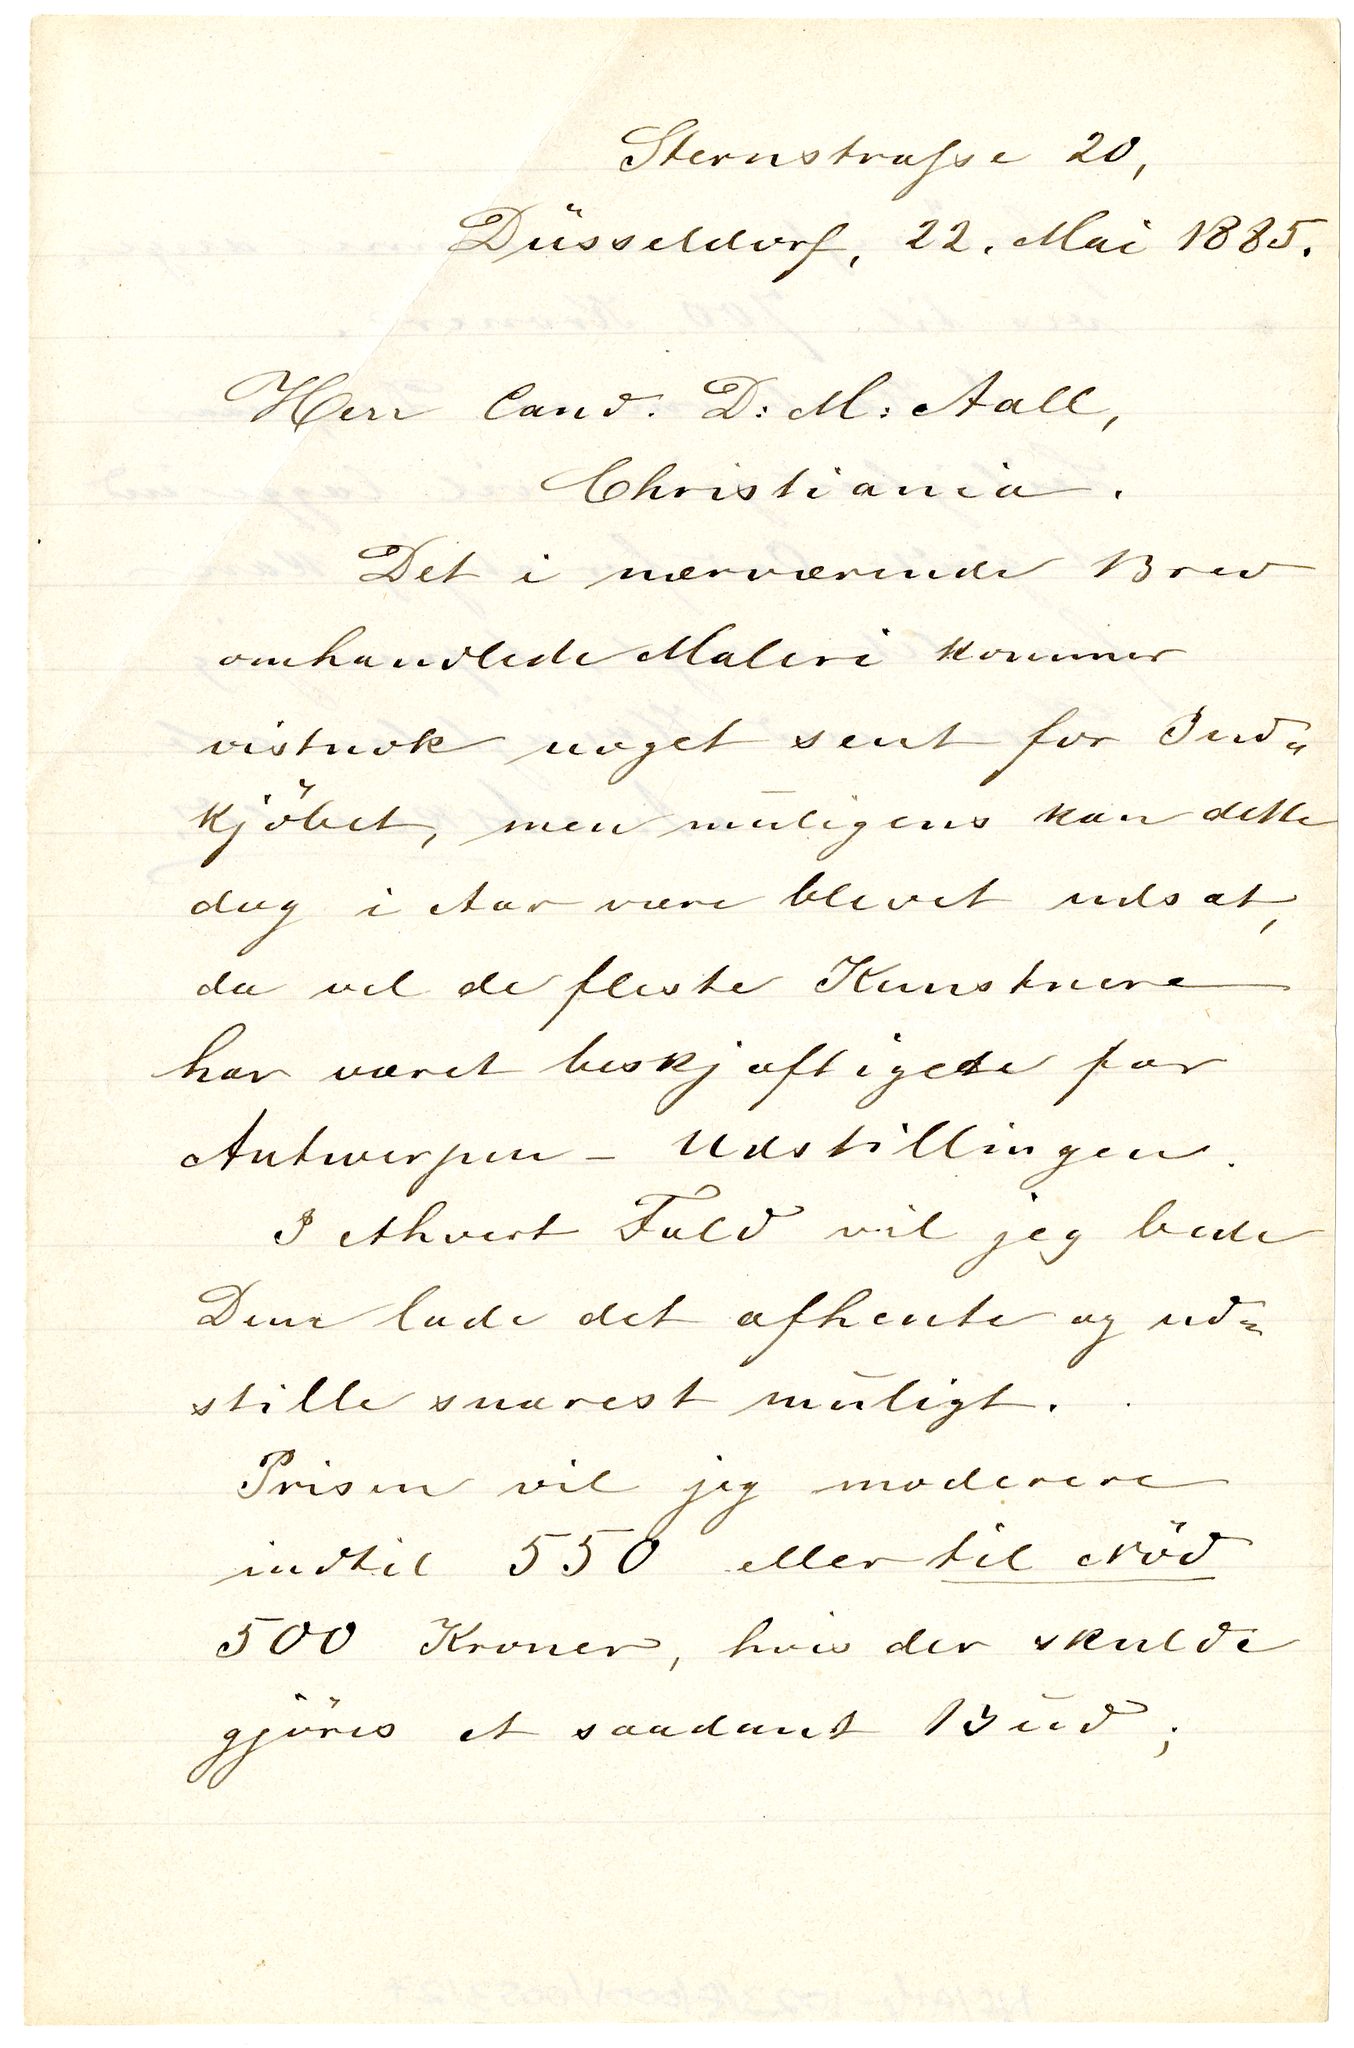 Sternstraſse 20,
Düsseldorf, 22. Mai 1885.
Herr Cand. D: M: Aall,
Christiania.
Det i nærværende Brev
omhandlede Maleri kommer
vistnok noget sent for Ind=
kjöbet, men muligens kan dette
dog i Aar være blevet udsat,
da vel de fleste Kunstnere
har været beskjæftigede for
Antwerpen - Udstillingen.
I ethvert Fald vil jeg bede
Dem lade det afhente og ud=
stille snarest muligt.
Prisen vil jeg moderere
indtil 550 eller til Nöd
500 Kroner, hvis der skulde
gjöres et saadant Bud;